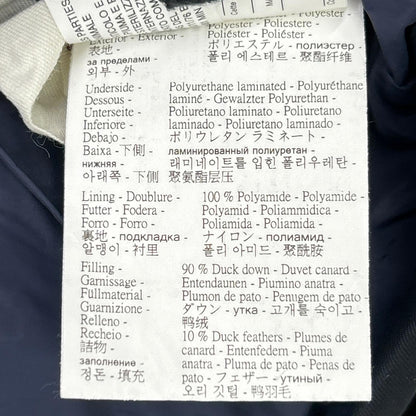 Exterior - Exterior - Poliestere - Poliéster -
表地 - ポリエステル - полиэстер -
за пределами 폴리 에스테르 - 聚酯纤维
외부 - 外
Underside - Polyurethane laminated - Polyuréthane
Dessous - laminé - Gewalzter Polyurethan -
Unterseite - Poliuretano laminato -
Inferiore - Poliuretano laminado -
Debajo - ポリウレタン ラミネート -
Baixa - 下側 - ламинированный полиуретан -
нижняя - 래미네이트를 입힌 폴리우레탄 -
아래쪽 - 下側 聚氨酯层压
Lining - Doublure - 100 % Polyamide - Polyamide -
Futter - Fodera - Polyamid - Poliammidica -
Forro - Forro - Poliamida - Poliamida -
裏地 - подкладка - ナイロン - полиамид -
알맹이 - 衬里 폴리 아미드 - 聚酰胺
Filling - 90 % Duck down - Duvet canard -
Garnissage - Entendaunen - Piumino anatra -
Füllmaterial - Plumon de pato - Penugem de pato -
Guarnizione - ダウン - утка - 고개를 숙이고 -
Relleno - 鸭绒
Recheio - 10 % Duck feathers - Plumes de
詰物 - canard - Entenfedern - Piuma
заполнение - anatra - Plumas de pato - Plumas de
정돈 - 填充 pato - フェザー - утиный -
오리 깃털 - 鸭羽毛